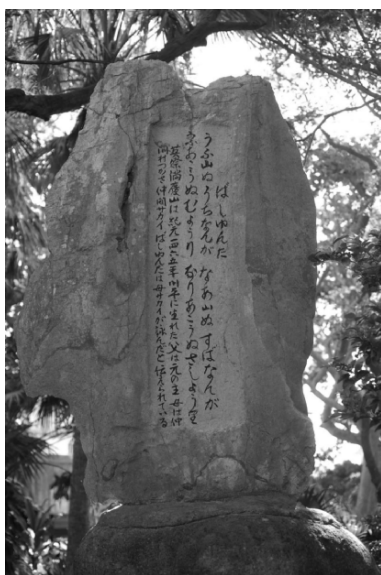 ばしゆんた
うふ山ぬうちなんが なあ山ぬ すばなんが
あこうぬむようり むりあこうぬさしようり
英傑満慶山は紀元一四六五年川平に生れた父は元の主母は仲
間村つかさ仲間サカイ ばしゆんたは母サカイが詠んだと伝えられている